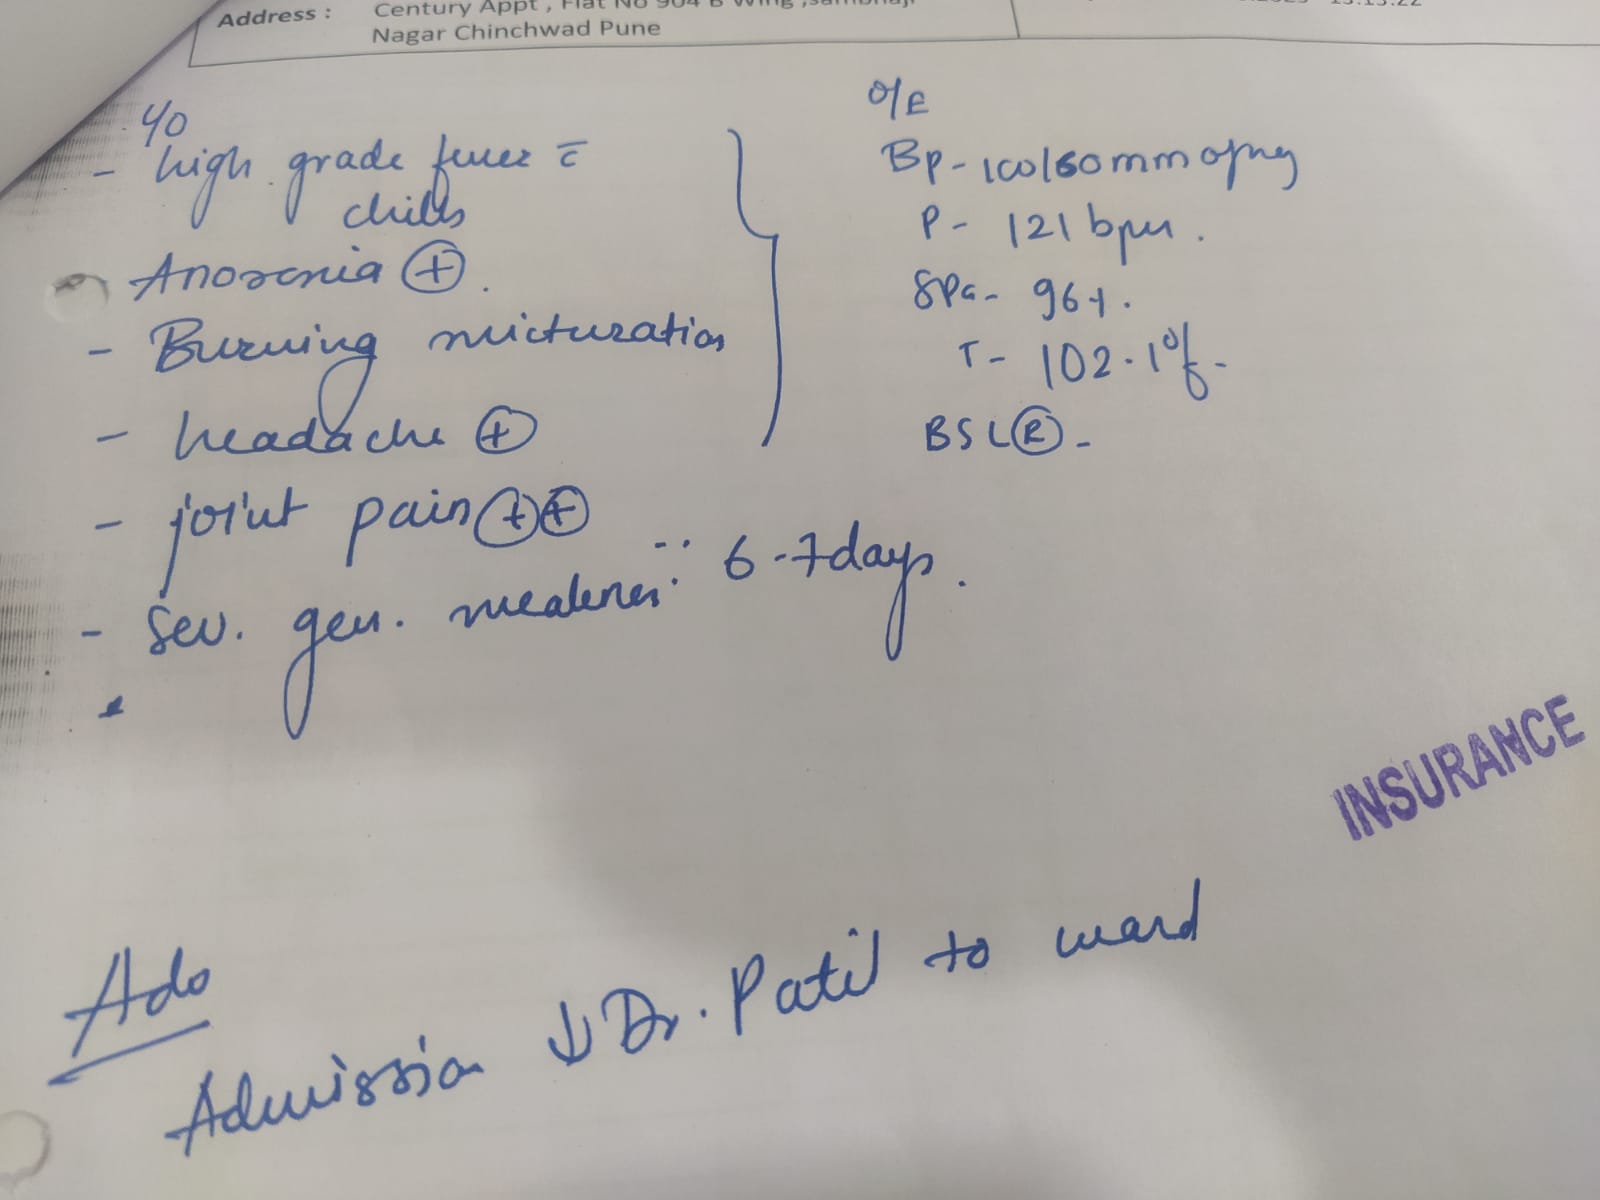 Address :
Century Appt , Flat No 904 B Wing ,sambhaji
Nagar Chinchwad Pune
13:13:22
c/o
- high grade fever c̄
chills
Anorexia (+).
- Burning micturation
- headache (+)
- joint pain (+)(+)
- Sev. gen. weakness ∵ 6-7days.
O/E
Bp- 100/60 mm of Hg
P- 121 bpm.
SPO2- 96%.
T- 102.1°f.
BSL(R)-
INSURANCE
Adv
Admission ↓ Dr. Patil to ward